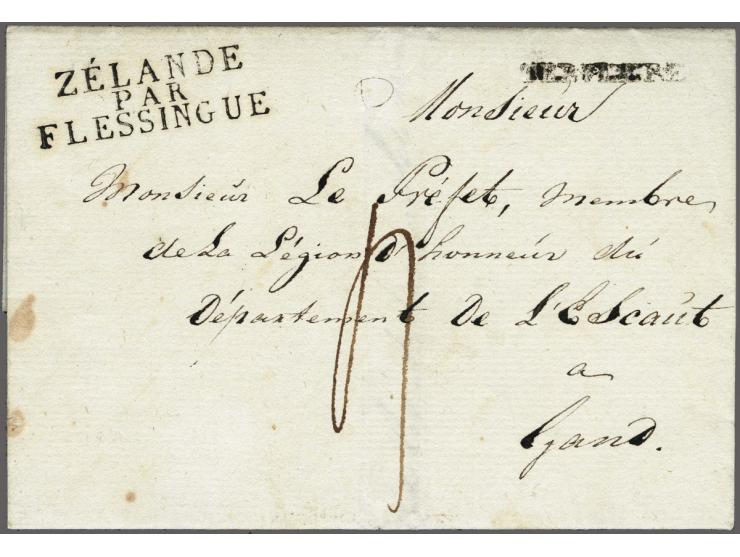 ZÉLANDE
PAR
FLESSINGUE
TER VEERE
Monsieur
Monsieur Le Préfet, membre
de La Légion d'honneur du
Département De L'Escaut
a
Gand.